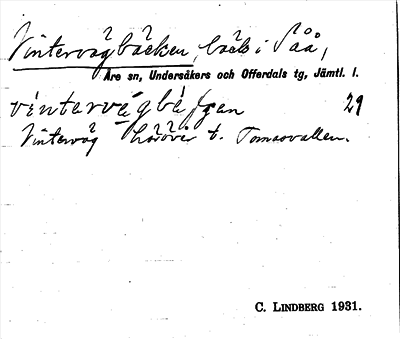 Vintervågbäcken, bäck i Såå,
Åre sn, Undersåkers och Offerdals tg, Jämtl. l.
29
Vintervåg t. Tomasvallen.
C. LINDBERG 1931.